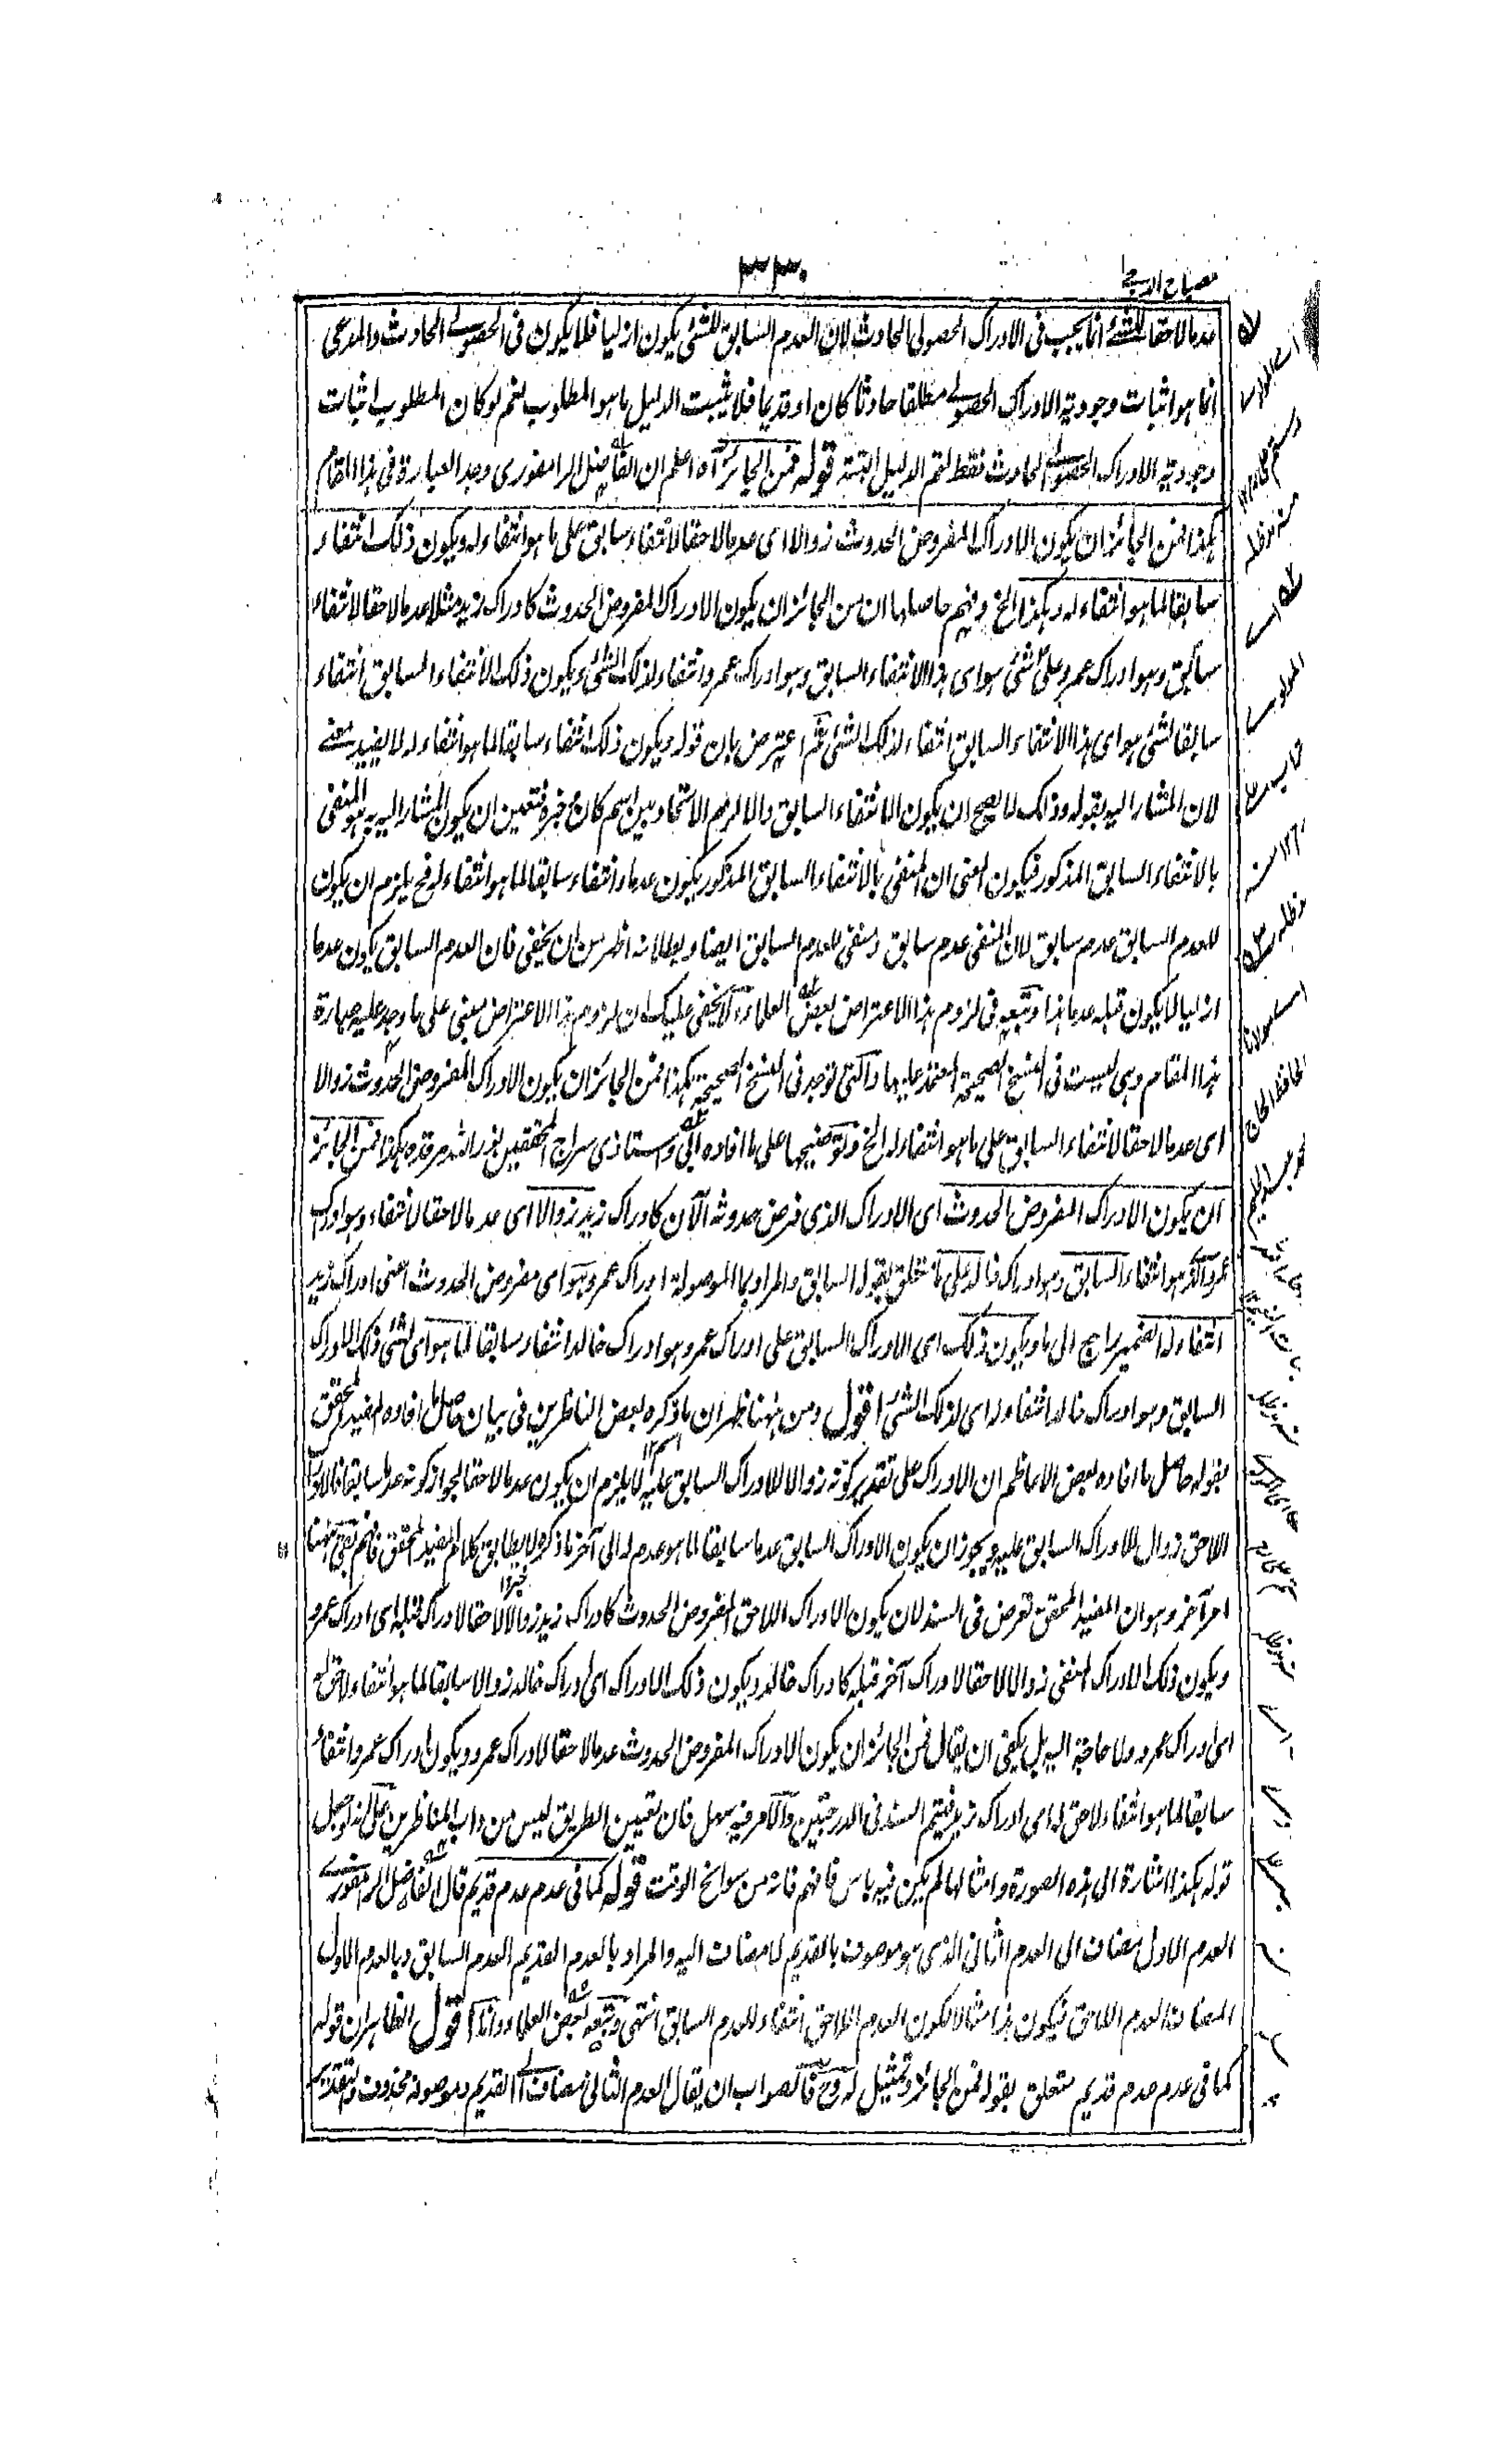 مصباح الدجى
٣٣٠
عدما لاحقا للشئ انما يجب فى الادراك الحصولى الحادث لان العدم السابق للشئ يكون ازليا فلا يكون فى الحصولى الحادث والمدعى
انما هو اثبات وجودية الادراك الحصولى مطلقا حادثا كان او قديما فلا يثبت الدليل ما هو المطلوب نعم لو كان المطلوب اثبات
وجودية الادراك الحصولى الحادث فقط لتم الدليل البتة قوله فمن الجائز آه اعلم ان الفاضل الرامفورى وجد العبارة فى هذا المقام
هكذا فمن الجائز ان يكون الادراك المفروض الحدوث زوالا اى عدما لاحقا لانتفاء سابق على ما هو انتفاء له ويكون ذلك انتفاء
سابقا لما هو انتفاء له وهكذا الخ وفهم حاصلها ان من الجائز ان يكون الادراك المفروض الحدوث كادراك زيد مثلا عدما لاحقا لانتفاء
سابق وهو ادراك عمرو على شئ هو اى هذا الانتفاء السابق وهو ادراك عمرو انتفاء لذلك الشئ ويكون ذلك الانتفاء السابق انتفاء
سابقا لشئ هو اى هذا الانتفاء السابق انتفاء لذلك الشئ ثم اعترض بان قوله ويكون ذلك انتفاء سابقا لما هو انتفاء له لا يفيد معنى
لان المشار اليه بقوله وذلك لا يصح ان يكون الانتفاء السابق والا لزم الاتحاد بين اسم كان وخبره فتعين ان يكون المشار اليه به هو المنفى
بالانتفاء السابق المذكور فيكون المعنى ان المنفى بالانتفاء السابق المذكور يكون عدما وانتفاء سابقا لما هو انتفاء له فح يلزم ان يكون
للعدم السابق عدم سابق لان المنفى عدم سابق ومنفى للعدم السابق ايضا وبطلانه اظهر من ان يخفى فان العدم السابق يكون عدما
ازليا لا يكون قبله عدم هذا وتبعه فى لزوم هذا الاعتراض بعض العلماء ولا يخفى عليك ان لزوم هذا الاعتراض مبنى على ما وجد عليه عبارة
هذا المقام وهى ليست فى النسخ الصحيحة المعتمد عليها والتى توجد فى النسخ الصحيحة هكذا فمن الجائز ان يكون الادراك المفروض الحدوث زوالا
اى عدما لاحقا لانتفاء السابق على ما هو انتفاء له الخ وتوضيحها على ما افاده ابى واستاذى سراج المحققين نور الله مرقده هكذا فمن الجائز
ان يكون الادراك المفروض الحدوث اى الادراك الذى فرض حدوثه الآن كادراك زيد زوالا اى عدما لاحقا لانتفاء وهو ادراك
عمرو الذى هو انتفاء السابق وهو ادراك خالد على ما متعلق بقوله السابق والمراد بما الموصولة ادراك عمرو هو اى مفروض الحدوث اعنى ادراك زيد
انتفاء له الضمير راجع الى ما ويكون ذلك اى الادراك السابق على ادراك عمرو وهو ادراك خالد انتفاء سابقا لما هو اى لشئ ذلك الادراك
السابق وهو ادراك خالد انتفاء له اى لذلك الشئ اقول ومن ههنا ظهر ان ما ذكره بعض الناظرين فى بيان حاصل ما افاده المفيد المحقق
بقوله حاصل ما افاده بعض الاعاظم ان الادراك على تقدير كونه زوالا للادراك السابق عليه لا يلزم ان يكون عدما لاحقا لجواز كونه عدما سابقا فالادراك
اللاحق زوال للادراك السابق عليه ويجوز ان يكون الادراك السابق عدما سابقا لما هو عدم له الى آخر ما ذكره لا يطابق كلام المفيد المحقق فافهم بقى ههنا
امر آخر وهو ان المفيد المحقق تعرض فى السند لان يكون الادراك اللاحق المفروض الحدوث كادراك زيد زوالا لاحقا لادراك قبله اى ادراك عمرو
ويكون ذلك الادراك المنفى زوالا لاحقا لادراك آخر قبله كادراك خالد ويكون ذلك الادراك اى ادراك خالد زوالا سابقا لما هو انتفاء لاحق له
اى ادراك عمرو ولا حاجة اليه بل يكفى ان يقال فمن الجائز ان يكون الادراك المفروض الحدوث عدما لاحقا لادراك عمرو ويكون ادراك عمرو انتفاء
سابقا لما هو انتفاء لاحق له اى ادراك زيد فيتم السند فى الدرجتين والامر فيه سهل فان تعيين الطريق ليس من داب المناظرين على انه لو جعل
قوله هكذا اشارة الى هذه الصورة وامثالها لم يكن فيه باس فافهم فانه من سوانح الوقت قوله كما فى عدم عدم قديم قال الفاضل الرامفورى
العدم الاول مضاف الى العدم الثانى الذى هو موصوف بالقديم لا مضاف اليه والمراد بالعدم القديم العدم السابق وبالعدم الاول
المضاف العدم اللاحق فيكون هذا مثالا لكون العدم اللاحق انتفاء للعدم السابق انتهى وتبعه بعض العلماء وانا اقول الظاهر ان قوله
كما فى عدم عدم قديم متعلق بقوله فمن الجائز وتمثيل له وح فالصواب ان يقال العدم الثانى مضاف الى القديم وموصوفه محذوف والتقدير